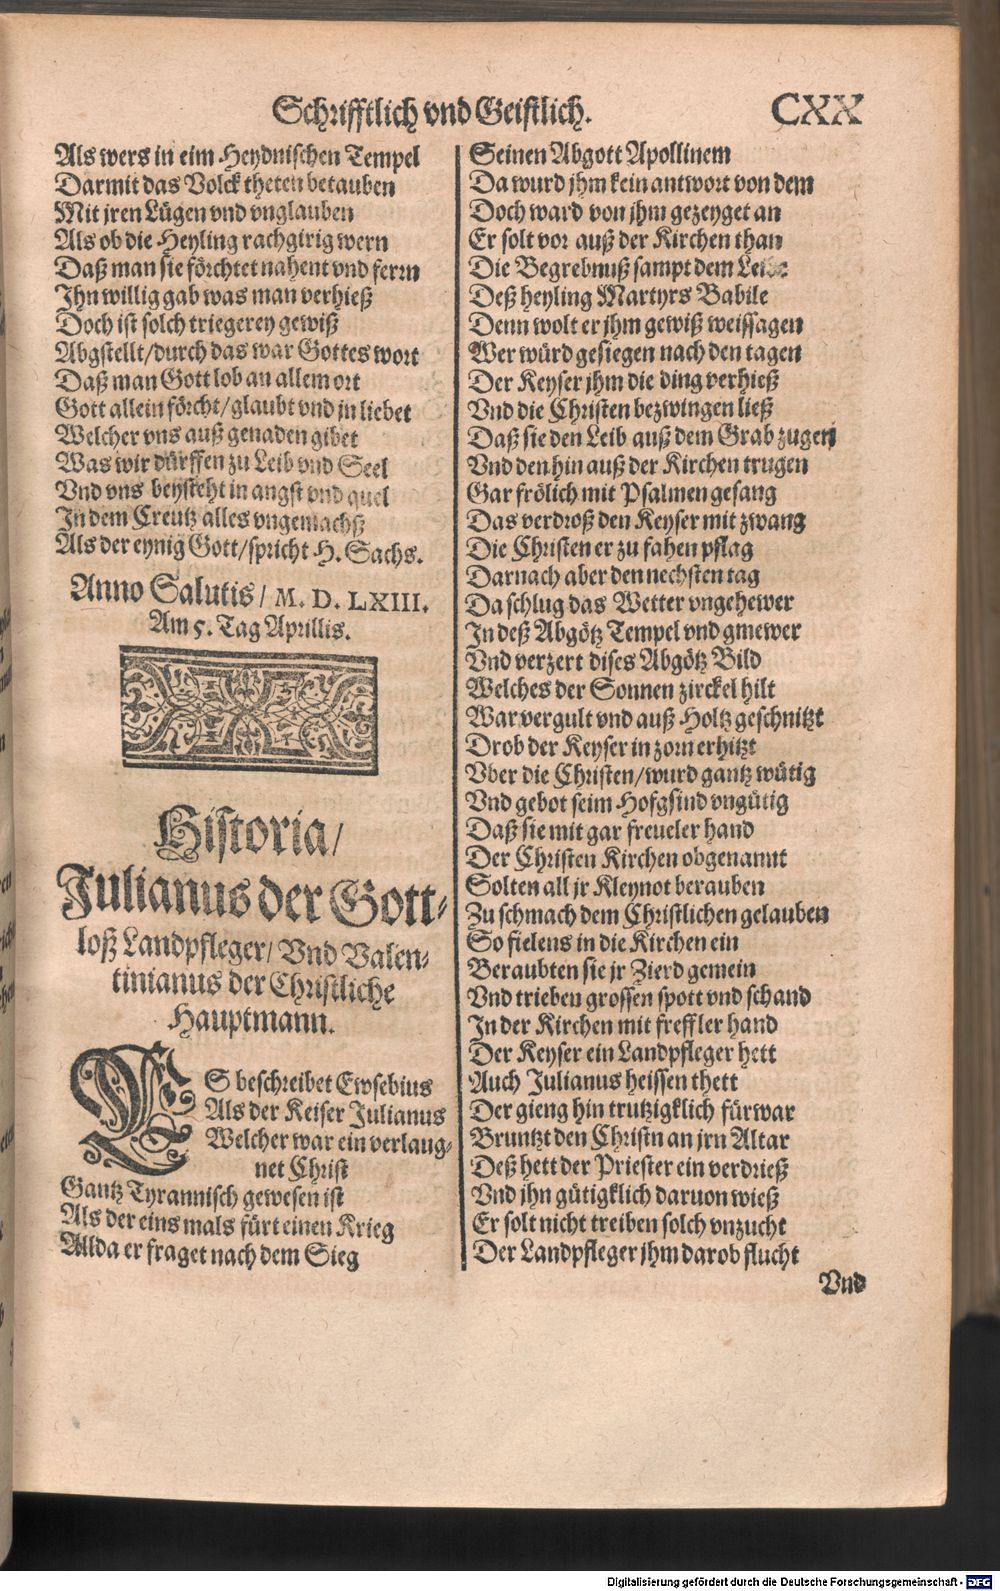 Schrifftlich vnd Geistlich. CXX
Als wers in eim Heydnischen Tempel
Darmit das Volck theten betauben
Mit jren Lügen vnd vnglauben
Als ob die Heyling rachgirig wern
Daß man sie förchtet nahent vnd ferrn
Ihn willig gab was man verhieß
Doch ist solch triegerey gewiß
Abgstellt/durch das war Gottes wort
Daß man Gott lob an allem ort
Gott allein förcht/glaubt vnd jn liebet
Welcher vns auß genaden gibet
Was wir dürffen zu Leib vnd Seel
Vnd vns beysteht in angst vnd quel
In dem Creutz alles vngemachs
Als der eynig Gott/spricht H. Sachs.
Anno Salutis/ M. D. LXIII.
Am 5. Tag Aprillis.
Historia/
Julianus der Gott-
loß Landpfleger/ Vnd Valen-
tinianus der Christliche
Hauptmann.
ES beschreibet Ewsebius
Als der Keiser Julianus
Welcher war ein verlaug-
net Christ
Gantz Tyrannisch gewesen ist
Als der eins mals fürt einen Krieg
Allda er fraget nach dem Sieg
Seinen Abgott Apollinem
Da wurd jhm kein antwort von dem
Doch ward von jhm gezeyget an
Er solt vor auß der Kirchen than
Die Begrebnuß sampt dem Leibe
Deß heyling Martyrs Babile
Denn wolt er jhm gewiß weissagen
Wer würd gesiegen nach den tagen
Der Keyser jhm die ding verhieß
Vnd die Christen bezwingen ließ
Daß sie den Leib auß dem Grab zugen
Vnd den hin auß der Kirchen trugen
Gar frölich mit Psalmen gesang
Das verdroß den Keyser mit zwang
Die Christen er zu fahen pflag
Darnach aber den nechsten tag
Da schlug das Wetter vngehewer
In deß Abgötz Tempel vnd gmewer
Vnd verzert dises Abgötz Bild
Welches der Sonnen zirckel hilt
War vergult vnd auß Holtz geschnitzt
Drob der Keyser in zorn erhitzt
Vber die Christen/wurd gantz wütig
Vnd gebot seim Hofgsind vngütig
Daß sie mit gar freueler hand
Der Christen Kirchen obgenannt
Solten all jr Kleynot berauben
Zu schmach dem Christlichen gelauben
So fielens in die Kirchen ein
Beraubten sie jr Zierd gemein
Vnd trieben grossen spott vnd schand
In der Kirchen mit freffler hand
Der Keyser ein Landpfleger hett
Auch Julianus heissen thett
Der gieng hin trutzigklich fürwar
Bruntzt den Christn an jrn Altar
Deß hett der Priester ein verdrieß
Vnd jhn gütigklich daruon wieß
Er solt nicht treiben solch vnzucht
Der Landpfleger jhm darob flucht
Vnd
Digitalisierung gefördert durch die Deutsche Forschungsgemeinschaft - DFG